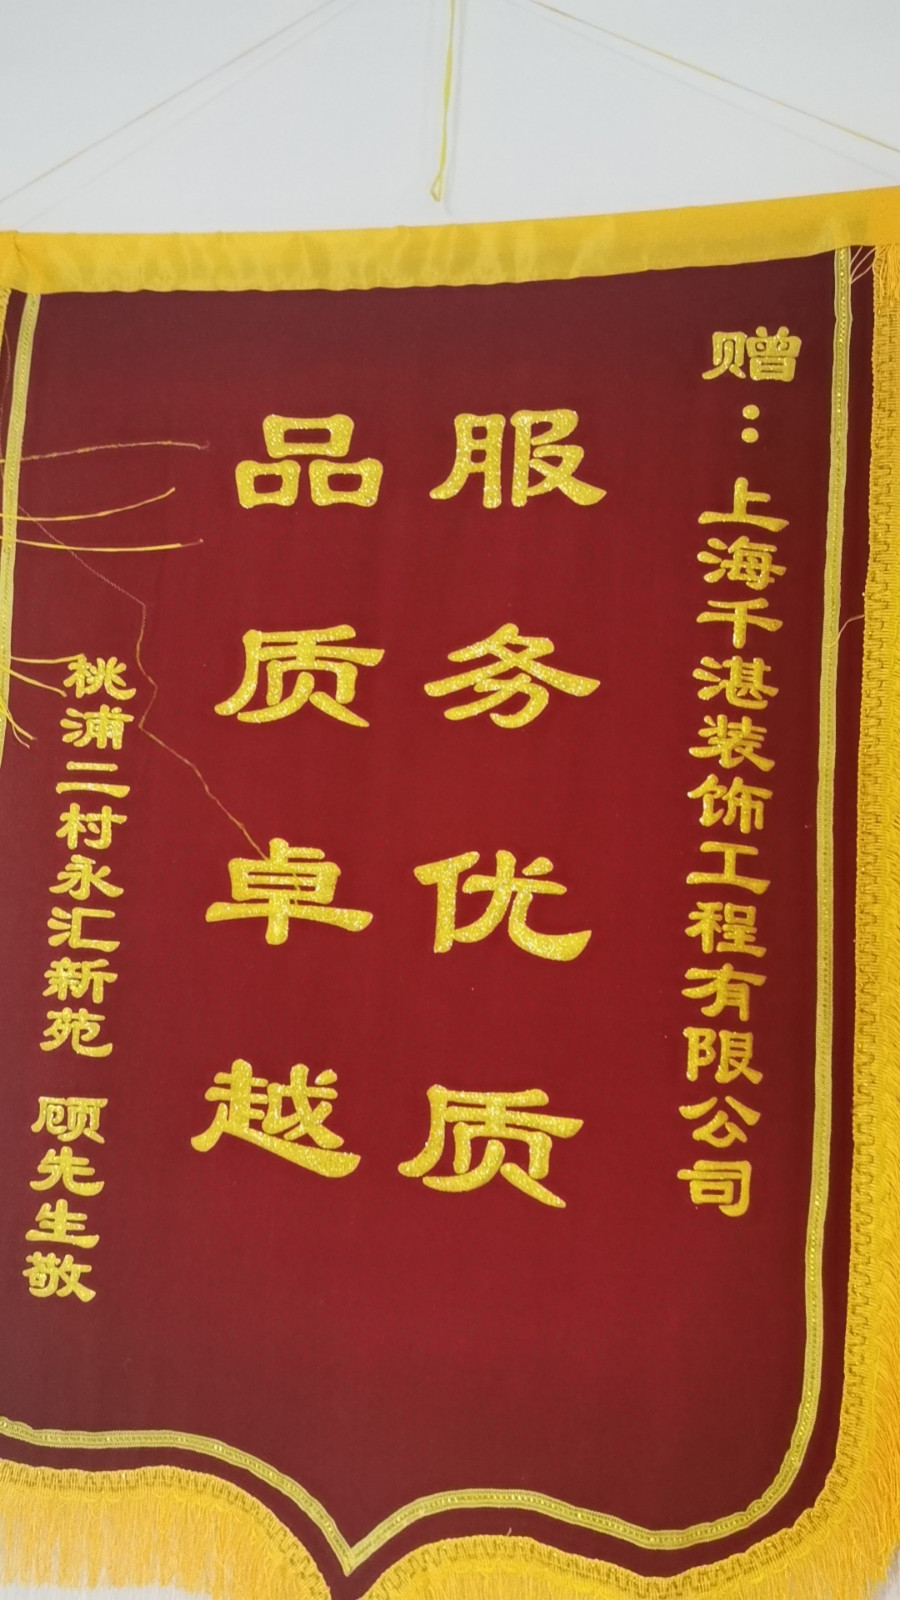 赠：上海千湛装饰工程有限公司
服务优质
品质卓越
桃浦二村永汇新苑 顾先生敬